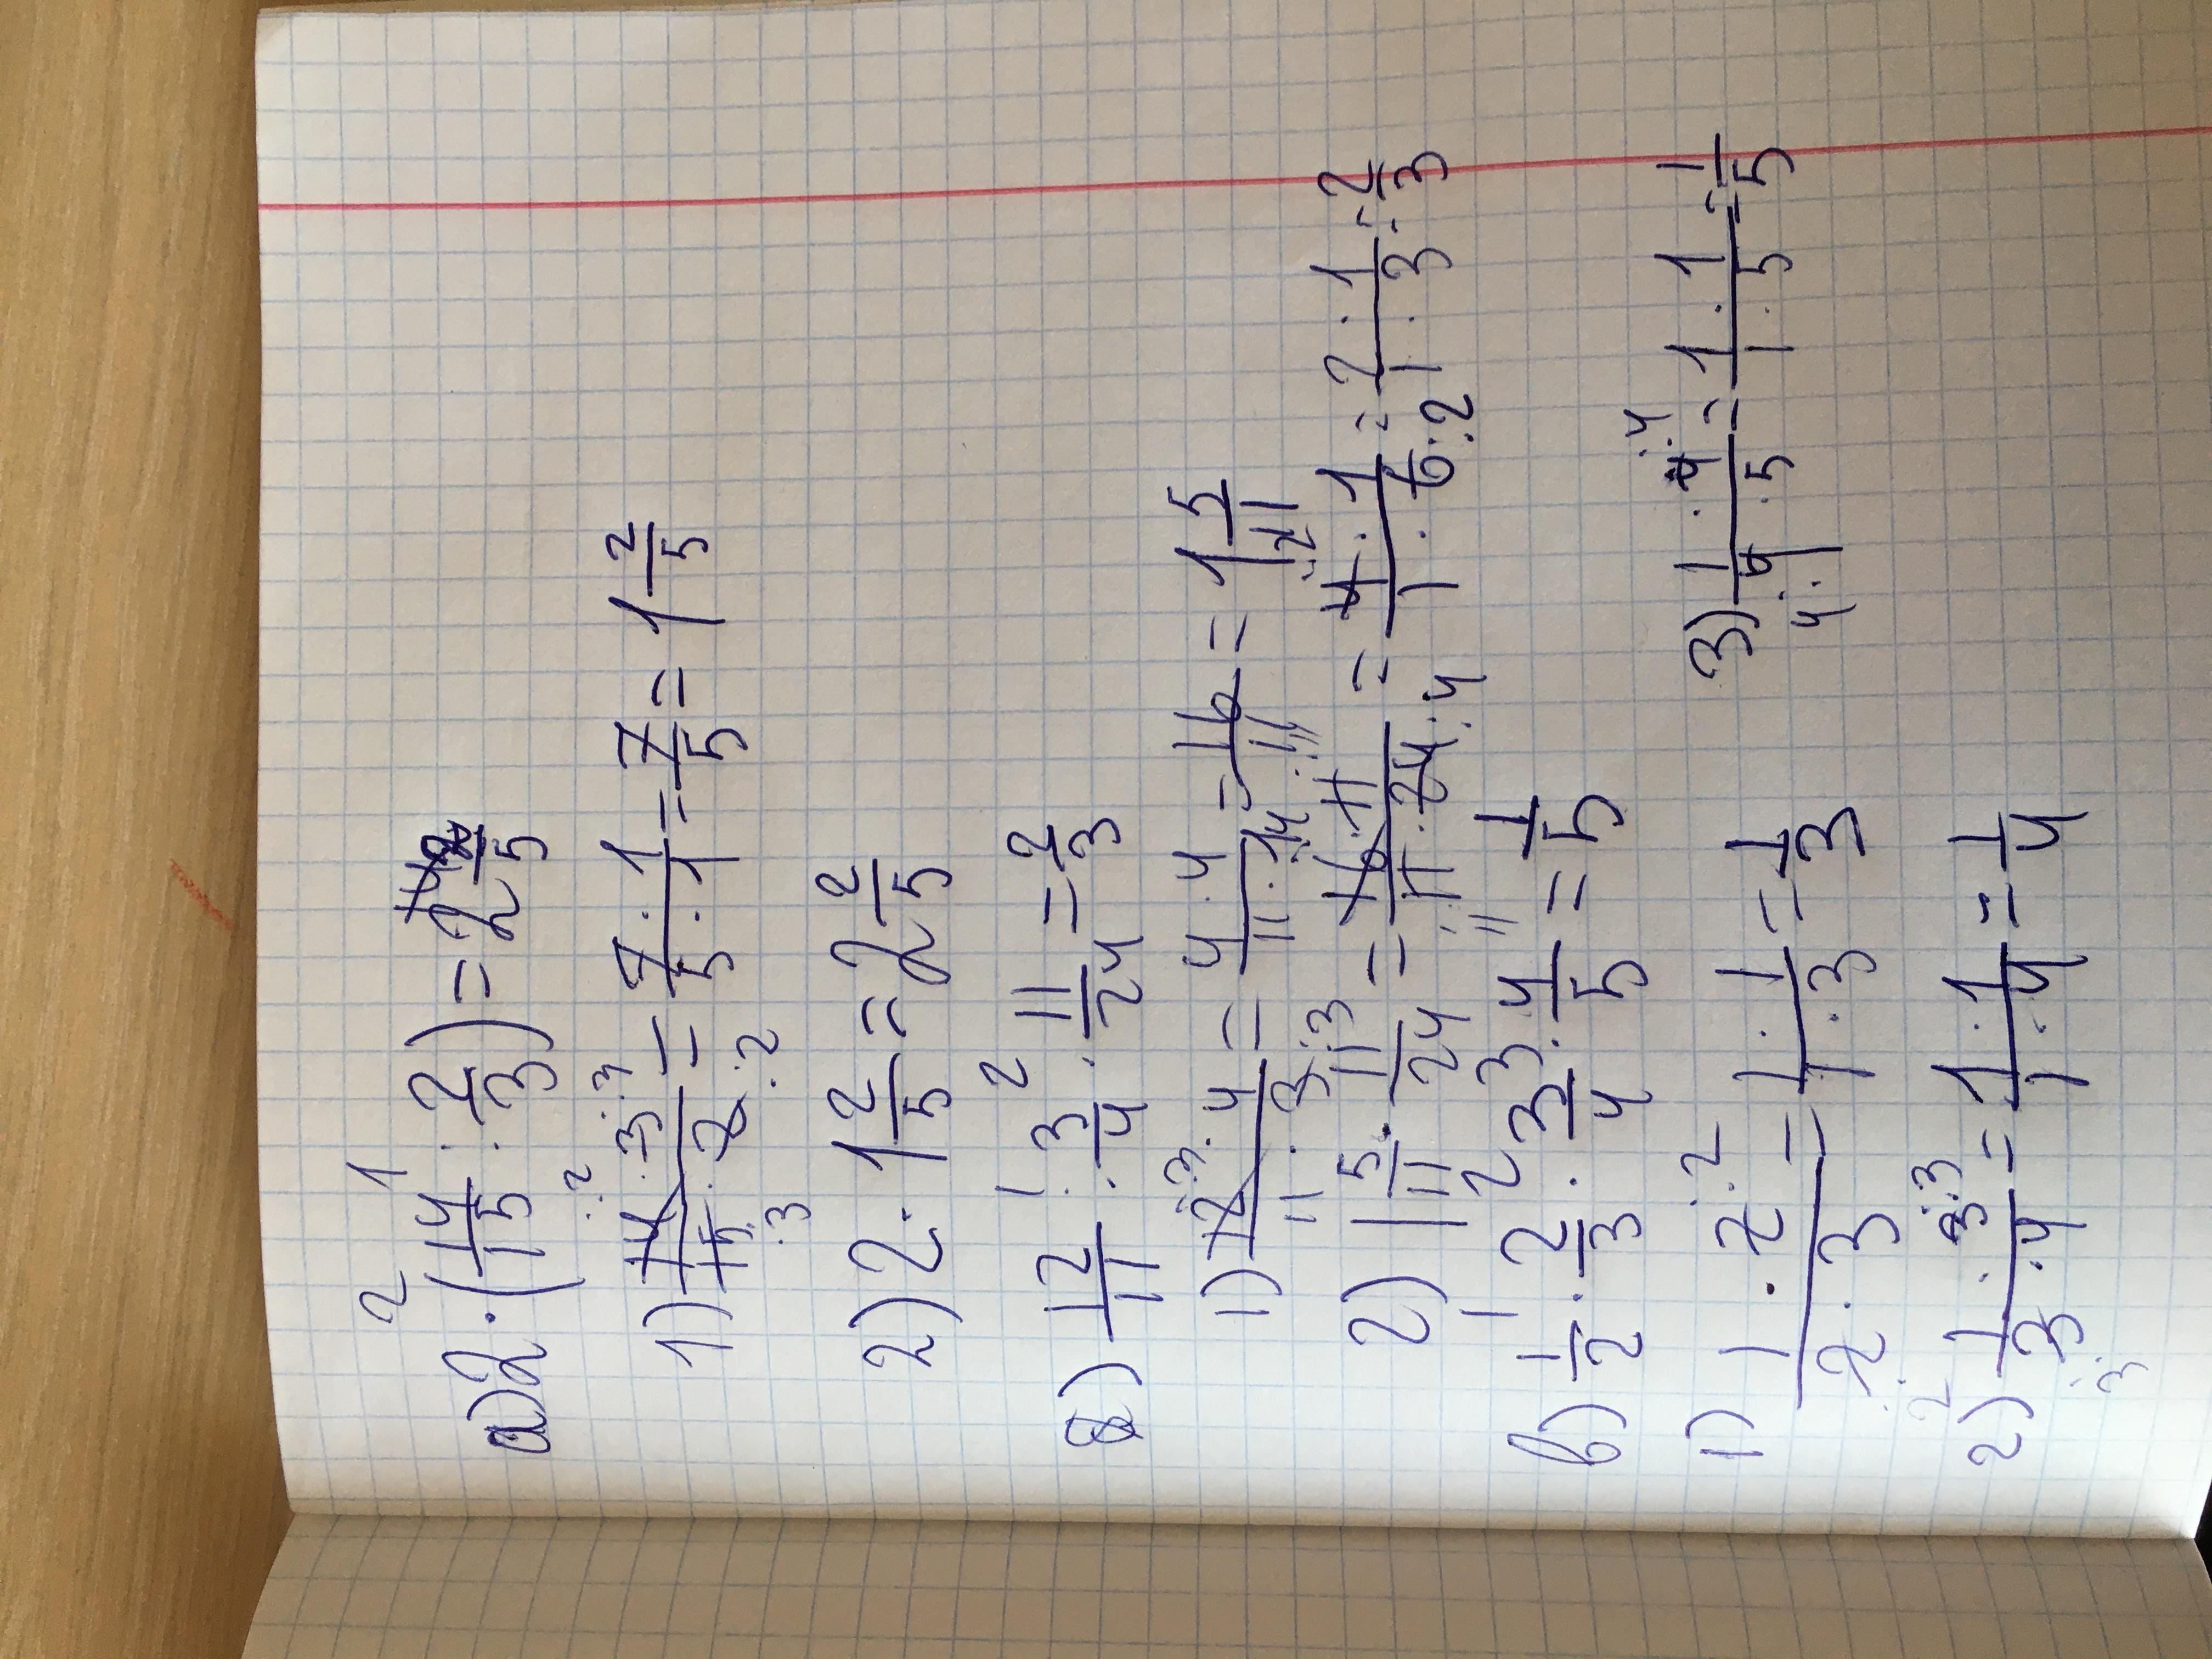 2 1
а) 2 · (14/15 : 2/3) = 2 2/5
1) 14 · 3 / 15 · 2 = 7 · 1 / 5 · 1 = 7/5 = 1 2/5
:2 :3
:3 :2
2) 2 · 1 2/5 = 2 2/5
1 2
б) 12/11 : 3/4 · 11/24 = 2/3
1) 12 · 4 / 11 · 3 = 4 · 4 / 11 · 1 = 16/11 = 1 5/11
:3
:3
2) 1 5/11 · 11/24 = 16 · 11 / 11 · 24 = 4 · 1 / 1 · 6 = 2 · 1 / 1 · 3 = 2/3
:4 :11 :2
:11 :4 :2
1 2 3
в) 1/2 · 2/3 · 3/4 · 4/5 = 1/5
1) 1 · 2 / 2 · 3 = 1 · 1 / 1 · 3 = 1/3
:2
:2
2) 1 · 3 / 3 · 4 = 1 · 1 / 1 · 4 = 1/4
:3
:3
3) 1 · 4 / 4 · 5 = 1 · 1 / 1 · 5 = 1/5
:4